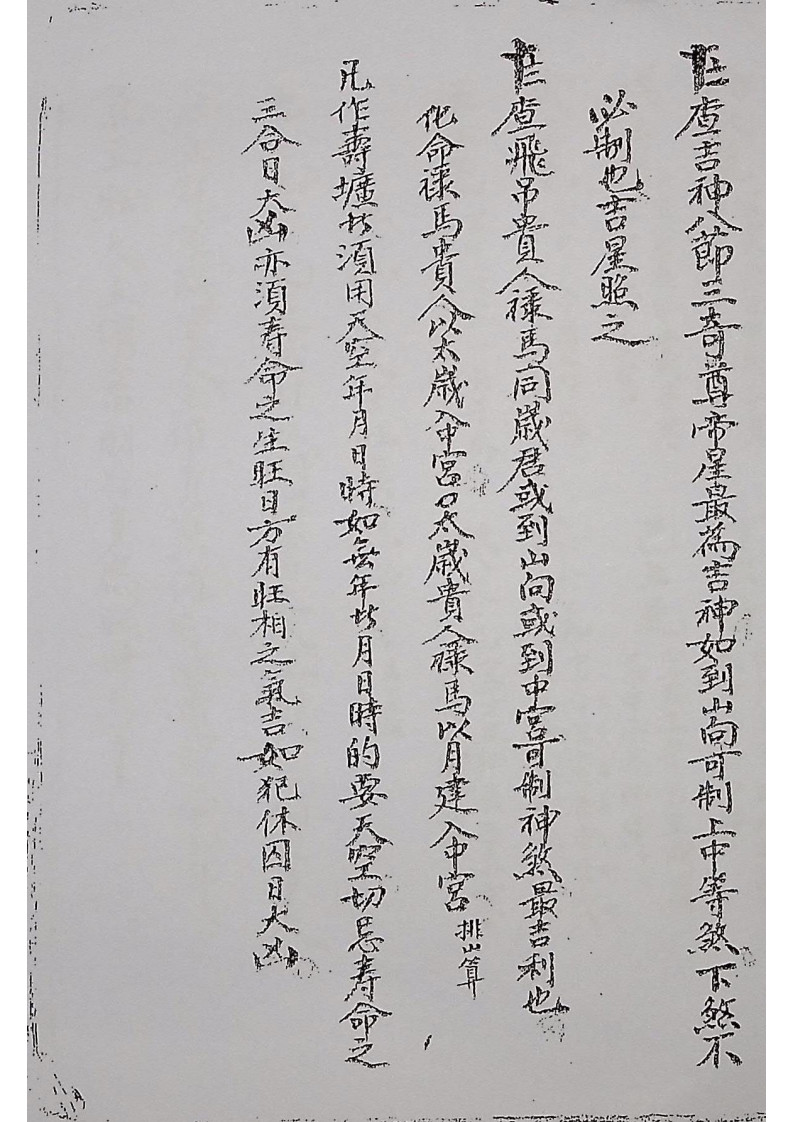 十二查吉神八節三奇尊帝星最為吉神如到山向可制上中等煞下煞不
必制也吉星照之
十三查飛吊貴人祿馬同歲君或到山向或到中宮可制神煞最吉利也
化命祿馬貴人以太歲入中宮口太歲貴人祿馬以月建入中宮 排山算
凡作壽壙皆須用天空年月日時如無年皆月日時的要天空切忌壽命之
三合日大凶亦須寿命之生旺日方有旺相之氣吉如犯休囚日大凶